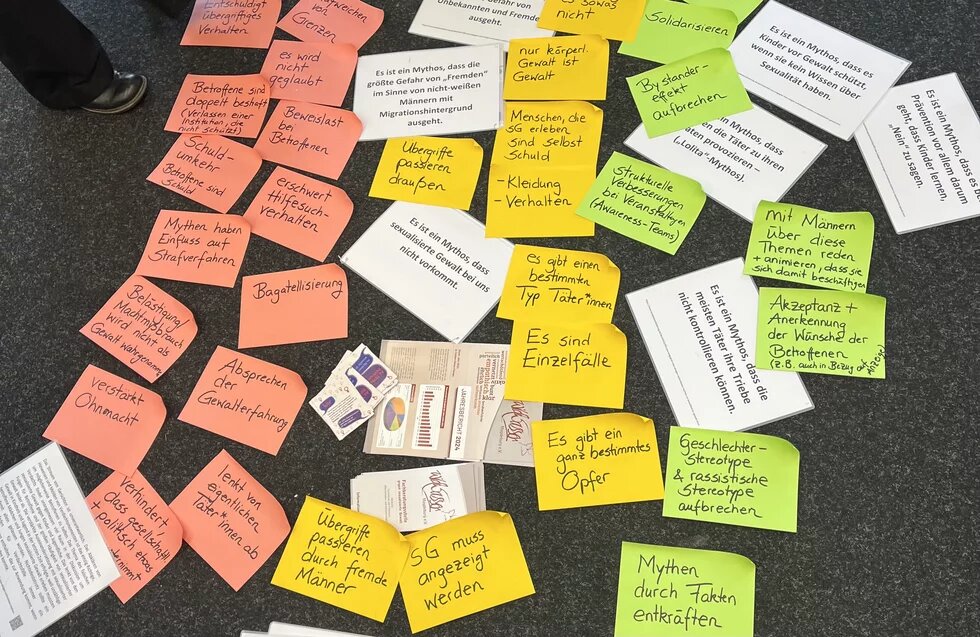 Entschuldigt
übergriffiges
Verhalten
von
Grenzen
es wird
nicht
geglaubt
Betroffene sind
doppelt bestraft
(Verlassen einer
Institution, die
nicht schützt)
Beweislast
bei
Betroffenen
Schuld-
umkehr
Betroffene sind
Schuld
erschwert
Hilfesuch-
verhalten
Mythen haben
Einfuss auf
Strafverfahren
Bagatellisierung
Belästigung/
Machtmissbrauch
wird nicht als
Gewalt wahrgenommen
Absprechen
der
Gewalterfahrung
verstärkt
Ohnmacht
lenkt von
eigentlichen
Täter*innen
ab
Verhindert,
dass gesellschaftl.
+ politisch etwas
Unbekannten und Fremden
ausgeht.
Es ist ein Mythos, dass die
größte Gefahr von „Fremden“
im Sinne von nicht-weißen
Männern mit
Migrationshintergrund
ausgeht.
sowas
nicht
nur körperl.
Gewalt ist
Gewalt
Menschen, die
SG erleben
sind selbst
Schuld
- Kleidung
- Verhalten
Übergriffe
passieren
draußen
Es ist ein Mythos, dass
sexualisierte Gewalt bei uns
nicht vorkommt.
es gibt einen
bestimmten
Typ Täter*innen
Es sind
Einzelfälle
JAHRESBERICHT 2024
Wildwasser
Es gibt ein
ganz bestimmtes
Opfer
Übergriffe
passieren
durch fremde
Männer
SG muss
angezeigt
werden
Solidarisieren
Bystander-
effekt
aufbrechen
Es ist ein Mythos, dass es
Kinder vor Gewalt schützt,
wenn sie kein Wissen über
Sexualität haben.
Mythos, dass
die Täter zu ihren
Taten provozieren –
(„Lolita“-Mythos).
Es ist ein Mythos, dass es bei
Prävention vor allem darum
geht, dass Kinder lernen,
„Nein“ zu sagen.
Strukturelle
Verbesserungen
bei Veranstaltungen
(Awareness-Teams)
mit Männern
über diese
Themen reden
+ animieren, dass sie
sich damit beschäftigen
Es ist ein Mythos, dass die
meisten Täter ihre Triebe
nicht kontrollieren können.
Akzeptanz +
Anerkennung
der Wünsche der
Betroffenen
(z.B. auch in Bezug auf
Anzeige)
Geschlechter-
Stereotype
& rassistische
Stereotype
aufbrechen
Mythen
durch Fakten
entkräften